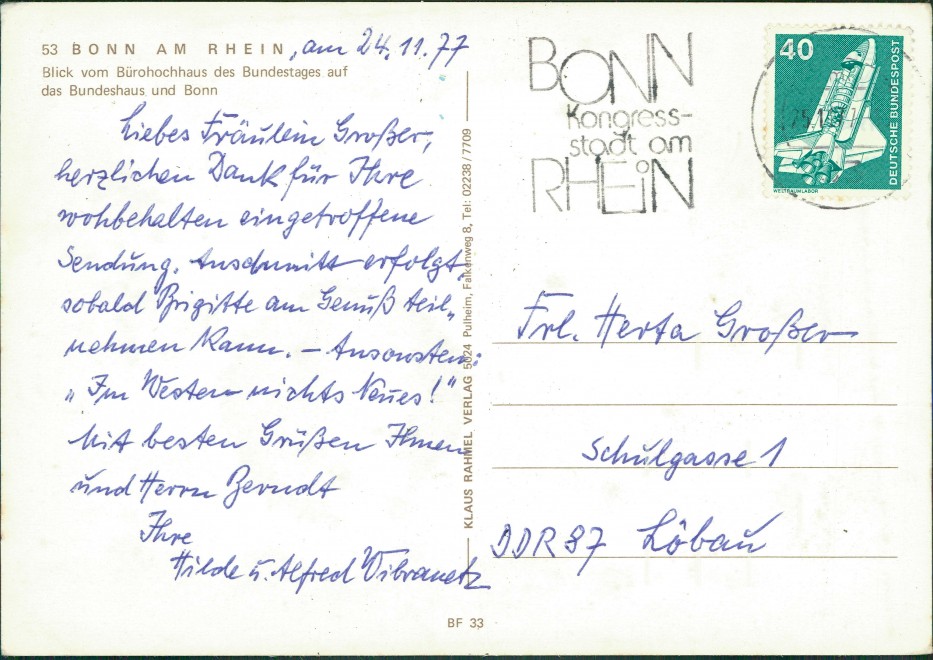 53 BONN AM RHEIN, am 24.11.77
Blick vom Bürohochhaus des Bundestages auf
das Bundeshaus und Bonn
Liebes Fräulein Großer,
herzlichen Dank für Ihre
wohbehalten eingetroffene
Sendung. Anschnitt erfolgt,
sobald Brigitte am Genuß teil„
nehmen kann. – Ansonsten:
„Im Westen nichts Neues!"
Mit besten Grüßen Ihnen
und Herrn Berndt
Ihre
Hilde u. Alfred Wibranetz
KLAUS RAHMEL VERLAG 5024 Pulheim, Falkenweg 8, Tel: 02238/7709
BF 33
BONN
Kongress-
stadt am
RHEiN
40
DEUTSCHE BUNDESPOST
WELTRAUMLABOR
Frl. Herta Großer
Schulgasse 1
DDR 87 Löbau